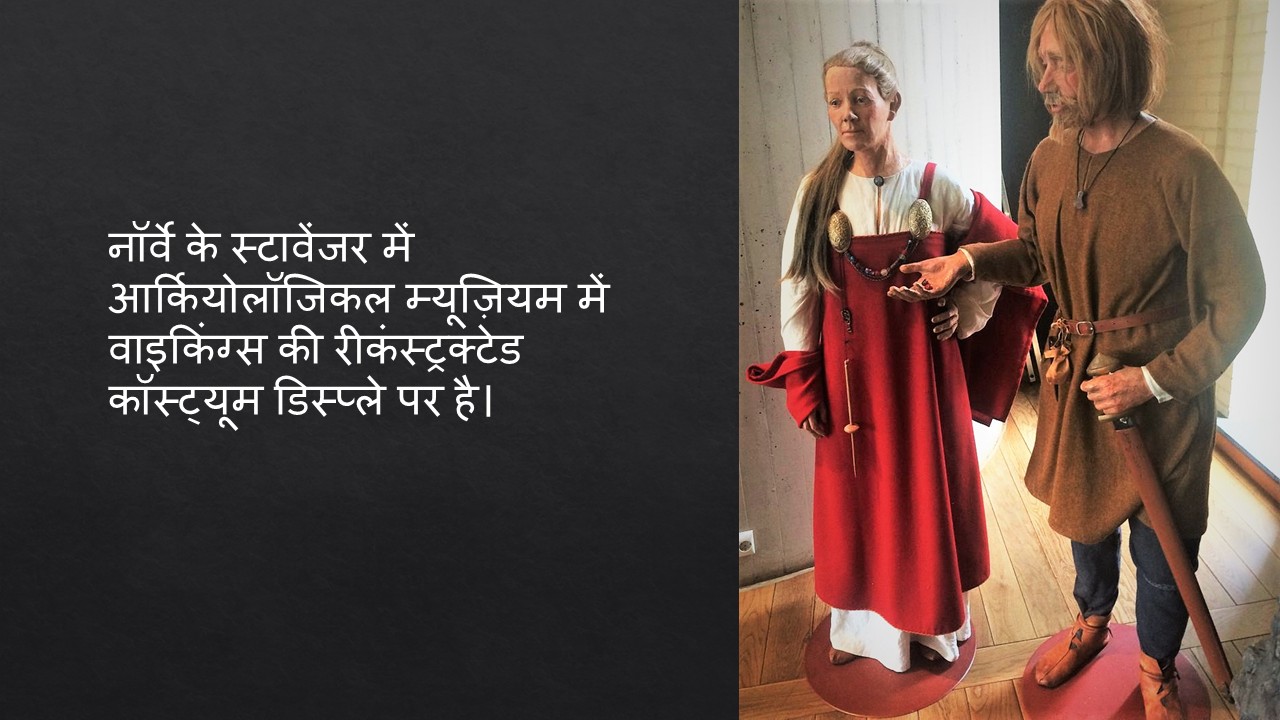 नॉर्वे के स्टावेंजर में
आर्कियोलॉजिकल म्यूज़ियम में
वाइकिंग्स की रीकंस्ट्रक्टेड
कॉस्ट्यूम डिस्प्ले पर है।